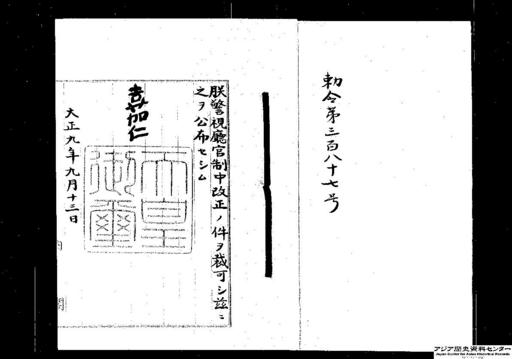 勅令第三百八十七号
朕警視廳官制中改正ノ件ヲ裁可シ茲ニ
之ヲ公布セシム
嘉仁
天皇
御璽
大正九年九月十三日
アジア歴史資料センター
Japan Center for Asian Historical Records